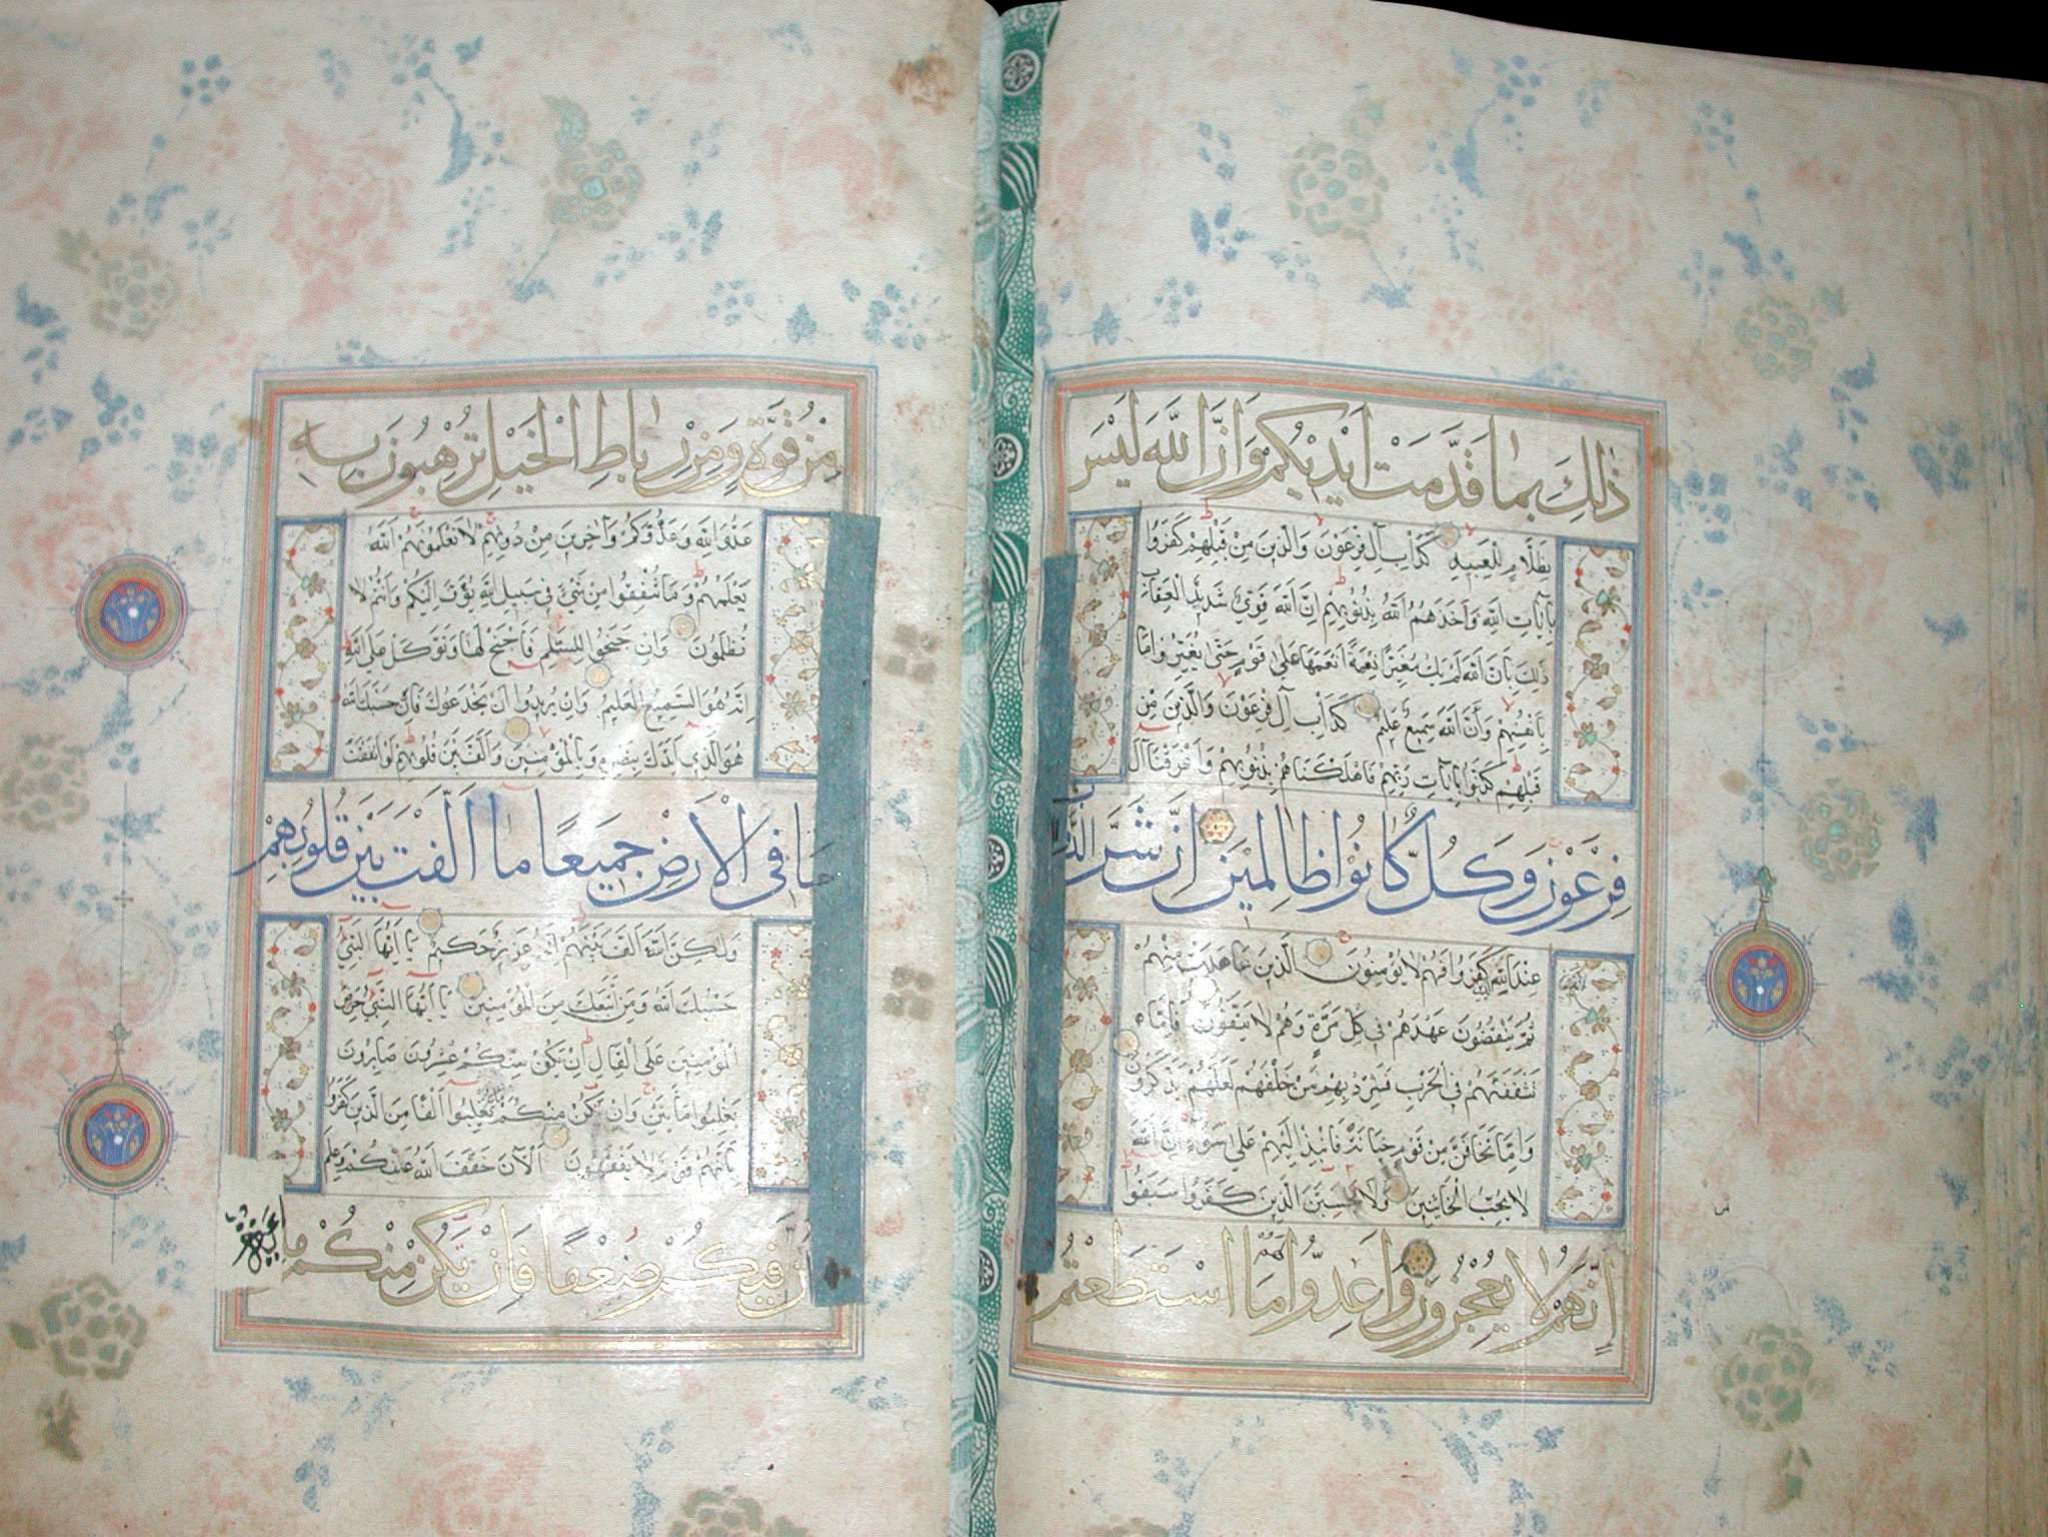 ذٰلِكَ بِمَا قَدَّمَتْ اَيْدٖيكُمْ وَاَنَّ اللّٰهَ لَيْسَ
بِظَلَّامٍ لِلْعَبٖيدِ كَدَاْبِ اٰلِ فِرْعَوْنَ وَالَّذٖينَ مِنْ قَبْلِهِمْ كَفَرُوا
بِاٰيَاتِ اللّٰهِ فَاَخَذَهُمُ اللّٰهُ بِذُنُوبِهِمْ اِنَّ اللّٰهَ قَوِىٌّ شَدٖيدُ الْعِقَابِ
ذٰلِكَ بِاَنَّ اللّٰهَ لَمْ يَكُ مُغَيِّرًا نِعْمَةً اَنْعَمَهَا عَلٰى قَوْمٍ حَتّٰى يُغَيِّرُوا مَا
بِاَنْفُسِهِمْ وَاَنَّ اللّٰهَ سَمٖيعٌ عَلٖيمٌ كَدَاْبِ اٰلِ فِرْعَوْنَ وَالَّذٖينَ مِنْ
قَبْلِهِمْ كَذَّبُوا بِاٰيَاتِ رَبِّهِمْ فَاَهْلَكْنَاهُمْ بِذُنُوبِهِمْ وَاَغْرَقْنَا اٰلَ
فِرْعَوْنَ وَكُلٌّ كَانُوا ظَالِمٖينَ اِنَّ شَرَّ الدَّوَابِّ
عِنْدَ اللّٰهِ الَّذٖينَ كَفَرُوا فَهُمْ لَا يُؤْمِنُونَ الَّذٖينَ عَاهَدْتَ مِنْهُمْ
ثُمَّ يَنْقُضُونَ عَهْدَهُمْ فٖى كُلِّ مَرَّةٍ وَهُمْ لَا يَتَّقُونَ فَاِمَّا
تَثْقَفَنَّهُمْ فِى الْحَرْبِ فَشَرِّدْ بِهِمْ مَنْ خَلْفَهُمْ لَعَلَّهُمْ يَذَّكَّرُونَ
وَاِمَّا تَخَافَنَّ مِنْ قَوْمٍ خِيَانَةً فَانْبِذْ اِلَيْهِمْ عَلٰى سَوَاءٍ اِنَّ اللّٰهَ
لَا يُحِبُّ الْخَائِنٖينَ وَلَا يَحْسَبَنَّ الَّذٖينَ كَفَرُوا سَبَقُوا
اِنَّهُمْ لَا يُعْجِزُونَ وَاَعِدُّوا لَهُمْ مَا اسْتَطَعْتُمْ
مِنْ قُوَّةٍ وَمِنْ رِبَاطِ الْخَيْلِ تُرْهِبُونَ بِهٖ
عَدُوَّ اللّٰهِ وَعَدُوَّكُمْ وَاٰخَرٖينَ مِنْ دُونِهِمْ لَا تَعْلَمُونَهُمُ اَللّٰهُ
يَعْلَمُهُمْ وَمَا تُنْفِقُوا مِنْ شَىْءٍ فٖى سَبٖيلِ اللّٰهِ يُوَفَّ اِلَيْكُمْ وَاَنْتُمْ لَا
تُظْلَمُونَ وَاِنْ جَنَحُوا لِلسَّلْمِ فَاجْنَحْ لَهَا وَتَوَكَّلْ عَلَى اللّٰهِ
اِنَّهُ هُوَ السَّمٖيعُ الْعَلٖيمُ وَاِنْ يُرٖيدُوا اَنْ يَخْدَعُوكَ فَاِنَّ حَسْبَكَ اللّٰهُ
هُوَ الَّذٖى اَيَّدَكَ بِنَصْرِهٖ وَبِالْمُؤْمِنٖينَ وَاَلَّفَ بَيْنَ قُلُوبِهِمْ لَوْ اَنْفَقْتَ
مَا فِى الْاَرْضِ جَمٖيعًا مَا اَلَّفْتَ بَيْنَ قُلُوبِهِمْ
وَلٰكِنَّ اللّٰهَ اَلَّفَ بَيْنَهُمْ اِنَّهُ عَزٖيزٌ حَكٖيمٌ يَا اَيُّهَا النَّبِىُّ
حَسْبُكَ اللّٰهُ وَمَنِ اتَّبَعَكَ مِنَ الْمُؤْمِنٖينَ يَا اَيُّهَا النَّبِىُّ حَرِّضِ
الْمُؤْمِنٖينَ عَلَى الْقِتَالِ اِنْ يَكُنْ مِنْكُمْ عِشْرُونَ صَابِرُونَ
يَغْلِبُوا مِائَتَيْنِ وَاِنْ يَكُنْ مِنْكُمْ مِائَةٌ يَغْلِبُوا اَلْفًا مِنَ الَّذٖينَ كَفَرُوا
بِاَنَّهُمْ قَوْمٌ لَا يَفْقَهُونَ اَلْاٰنَ خَفَّفَ اللّٰهُ عَنْكُمْ وَعَلِمَ
اَنَّ فٖيكُمْ ضَعْفًا فَاِنْ يَكُنْ مِنْكُمْ مِا